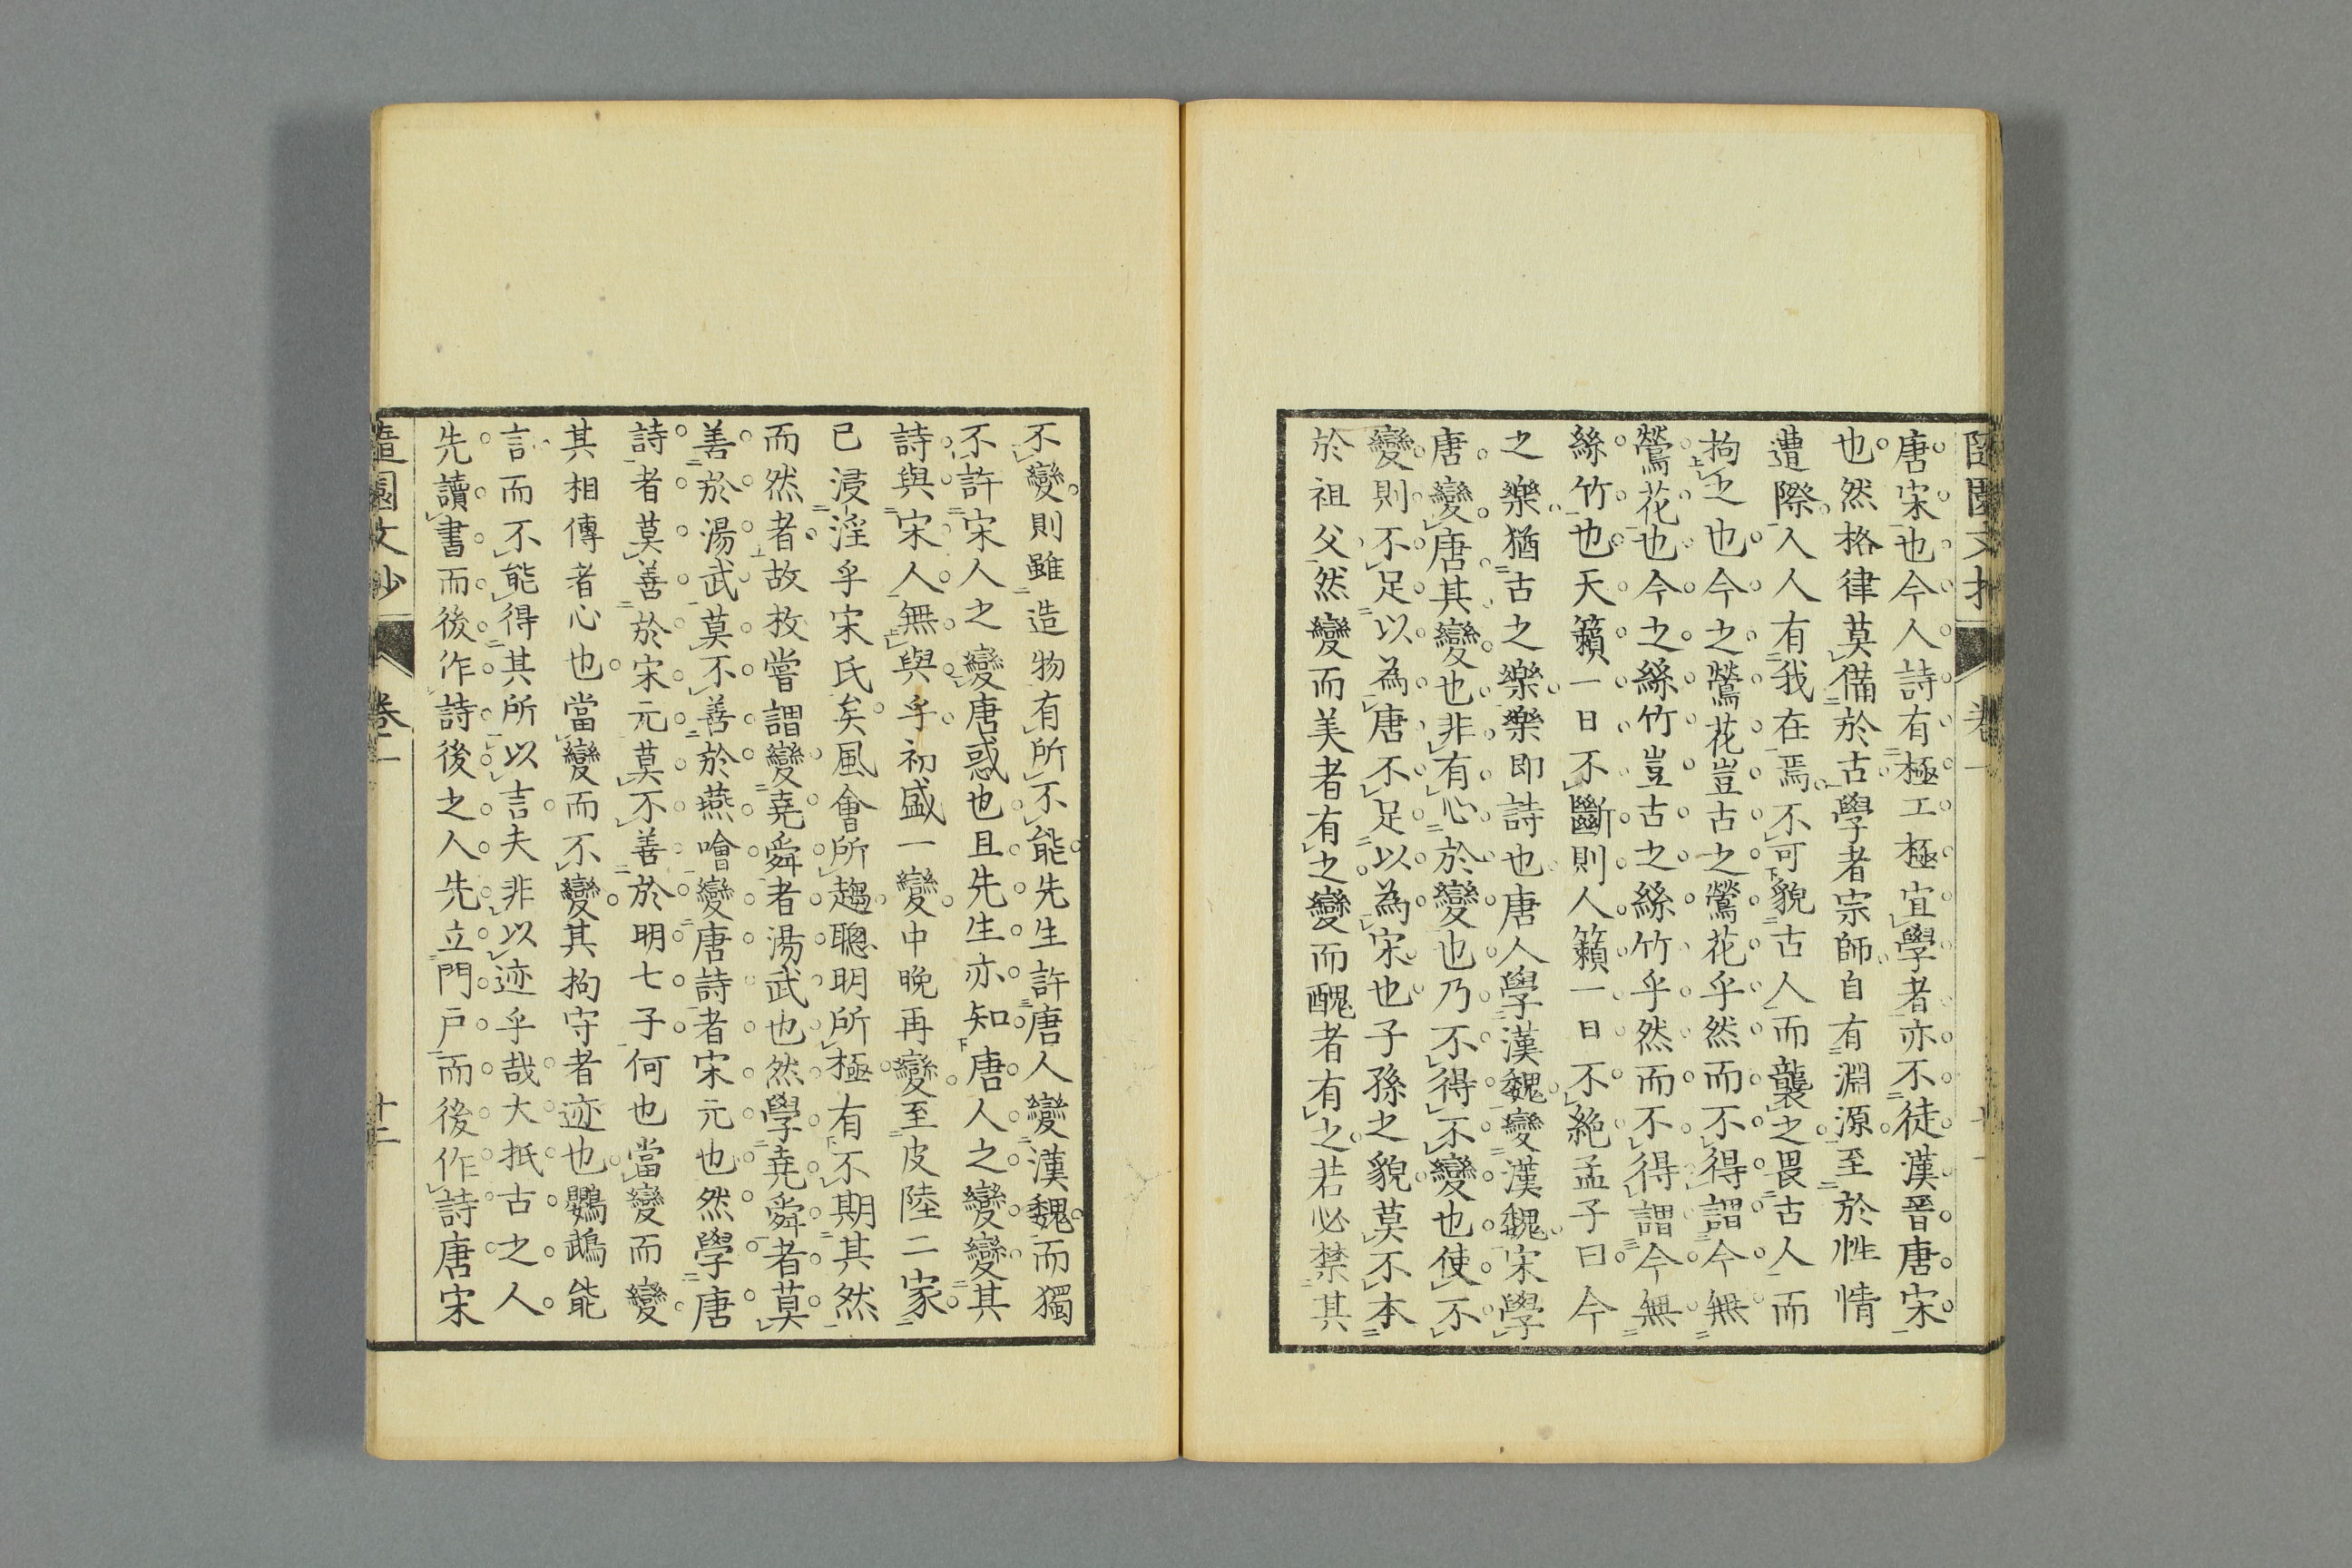 唐宋也今人詩有極工極宜學者亦不徒漢晉唐宋
也然格律莫備於古學者宗師自有淵源至於性情
遭際人人有我在焉不可貌古人而襲之畏古人而
拘之也今之鶯花豈古之鶯花乎然而不得謂今無
鶯花也今之絲竹豈古之絲竹乎然而不得謂今無
絲竹也天籟一日不斷則人籟一日不絶孟子曰今
之樂猶古之樂樂即詩也唐人學漢魏變漢魏宋學
唐變唐其變也非有心於變也乃不得不變也使不
變則不足以為唐不足以為宋也子孫之貌莫不本
於祖父然變而美者有之變而醜者有之若必禁其
不變則雖造物有所不能先生許唐人變漢魏而獨
不許宋人之變唐惑也且先生亦知唐人之變變其
詩與宋人無與乎初盛一變中晚再變至皮陸二家
已浸淫乎宋氏矣風會所趨聰明所極有不期其然
而然者故枚嘗謂變堯舜者湯武也然學堯舜者莫
善於湯武莫不善於燕噲變唐詩者宋元也然學唐
詩者莫善於宋元莫不善於明七子何也當變而變
其相傳者心也當變而不變其拘守者迹也鸚鵡能
言而不能得其所以言夫非以迹乎哉大抵古之人
先讀書而後作詩後之人先立門戶而後作詩唐宋
隨園文鈔 卷一 十二